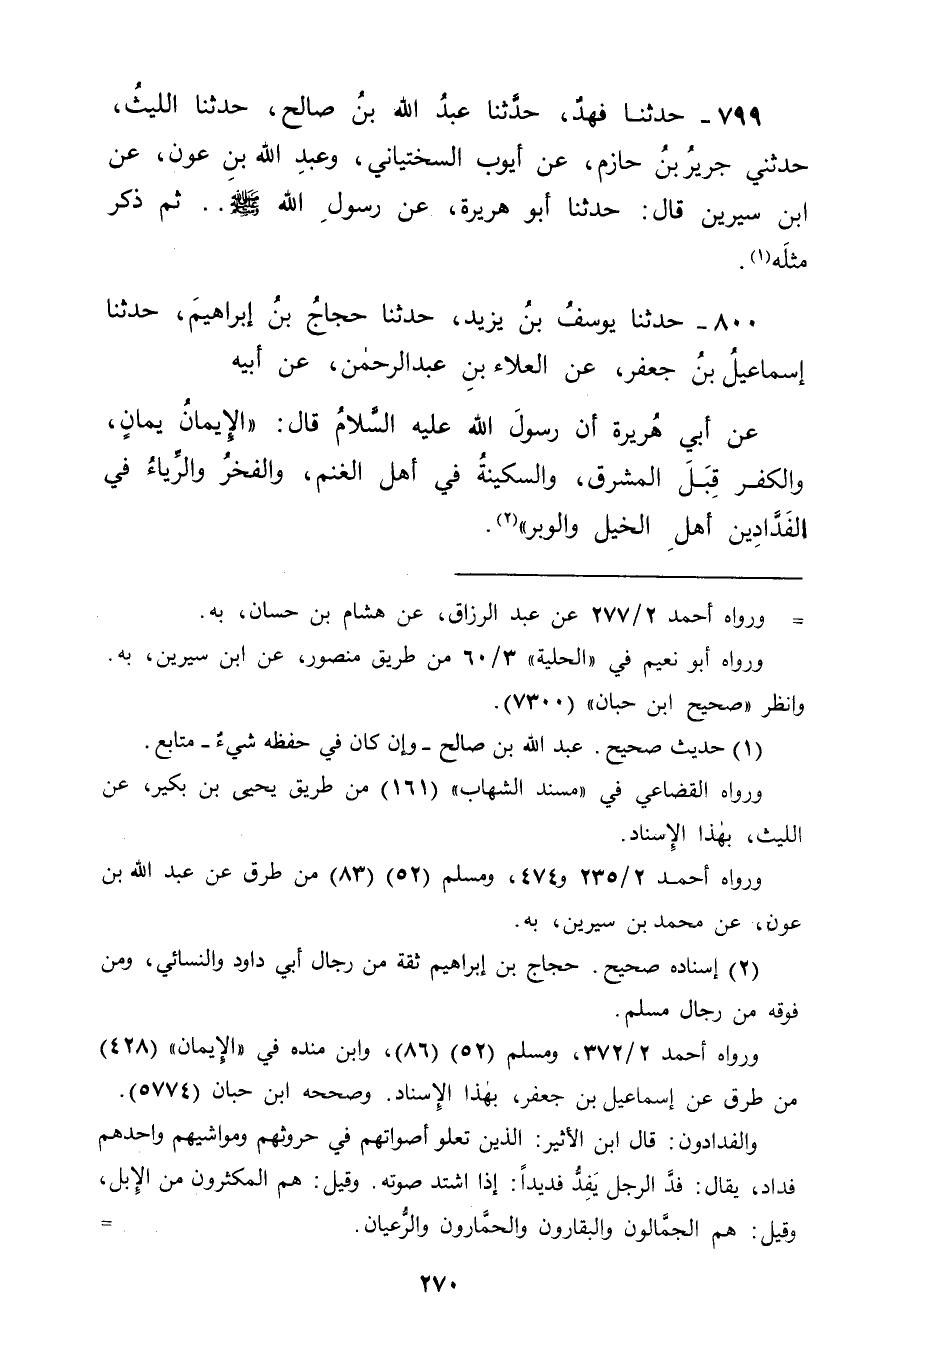 ٧٩٩ـ حدثنـا فهدٌ، حدَّثنا عبدُ الله بنُ صالح، حدثنا الليثُ،
حدثني جريرُ بنُ حازم، عن أيوب السختياني، وعبدِ الله بنِ عون، عن
ابن سيرين قال: حدثنا أبو هريرة، عن رسولِ الله ﷺ.. ثم ذكر
مثلَه(١).
٨٠٠ـ حدثنا يوسفُ بنُ يزيد، حدثنا حجاجُ بنُ إبراهيمَ، حدثنا
إسماعيلُ بنُ جعفر، عن العلاء بنِ عبدالرحمٰن، عن أبيه
عن أبي هُريرة أن رسولَ الله عليه السَّلامُ قال: «الإِيمانُ يمانٍ،
والكفـر قِبَلَ المشرق، والسكينةُ في أهل الغنم، والفخرُ والرِّياءُ في
الفَدَّادِين أهلِ الخيل والوبر»(٢).
= ورواه أحمد ٢٧٧/٢ عن عبد الرزاق، عن هشام بن حسان، به.
ورواه أبو نعيم في «الحلية» ٦٠/٣ من طريق منصور، عن ابن سيرين، به.
وانظر «صحيح ابن حبان» (٧٣٠٠).
(١) حديث صحيح. عبد الله بن صالح ـ وإن كان في حفظه شيءٌ ـ متابع.
ورواه القضاعي في «مسند الشهاب» (١٦١) من طريق يحيى بن بكير، عن
الليث، بهٰذا الإِسناد.
ورواه أحمـد ٢٣٥/٢ و٤٧٤، ومسلم (٥٢) (٨٣) من طرق عن عبد الله بن
عون، عن محمد بن سيرين، به.
(٢) إسناده صحيح. حجاج بن إبراهيم ثقة من رجال أبي داود والنسائي، ومن
فوقه من رجال مسلم.
ورواه أحمد ٣٧٢/٢، ومسلم (٥٢) (٨٦)، وابن منده في «الإِيمان» (٤٢٨)
من طرق عن إسماعيل بن جعفر، بهٰذا الإِسناد. وصححه ابن حبان (٥٧٧٤).
والفدادون: قال ابن الأثير: الذين تعلو أصواتهم في حروثهم ومواشيهم واحدهم
فداد، يقال: فدَّ الرجل يَفِدُّ فديداً: إذا اشتد صوته. وقيل: هم المكثرون من الإِبل،
وقيل: هم الجمَّالون والبقارون والحمَّارون والرُّعيان. =
٢٧٠